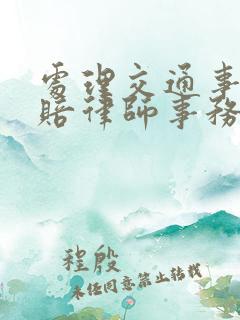 處理交通事
賠律師事務
程殷
未任同意禁止转载